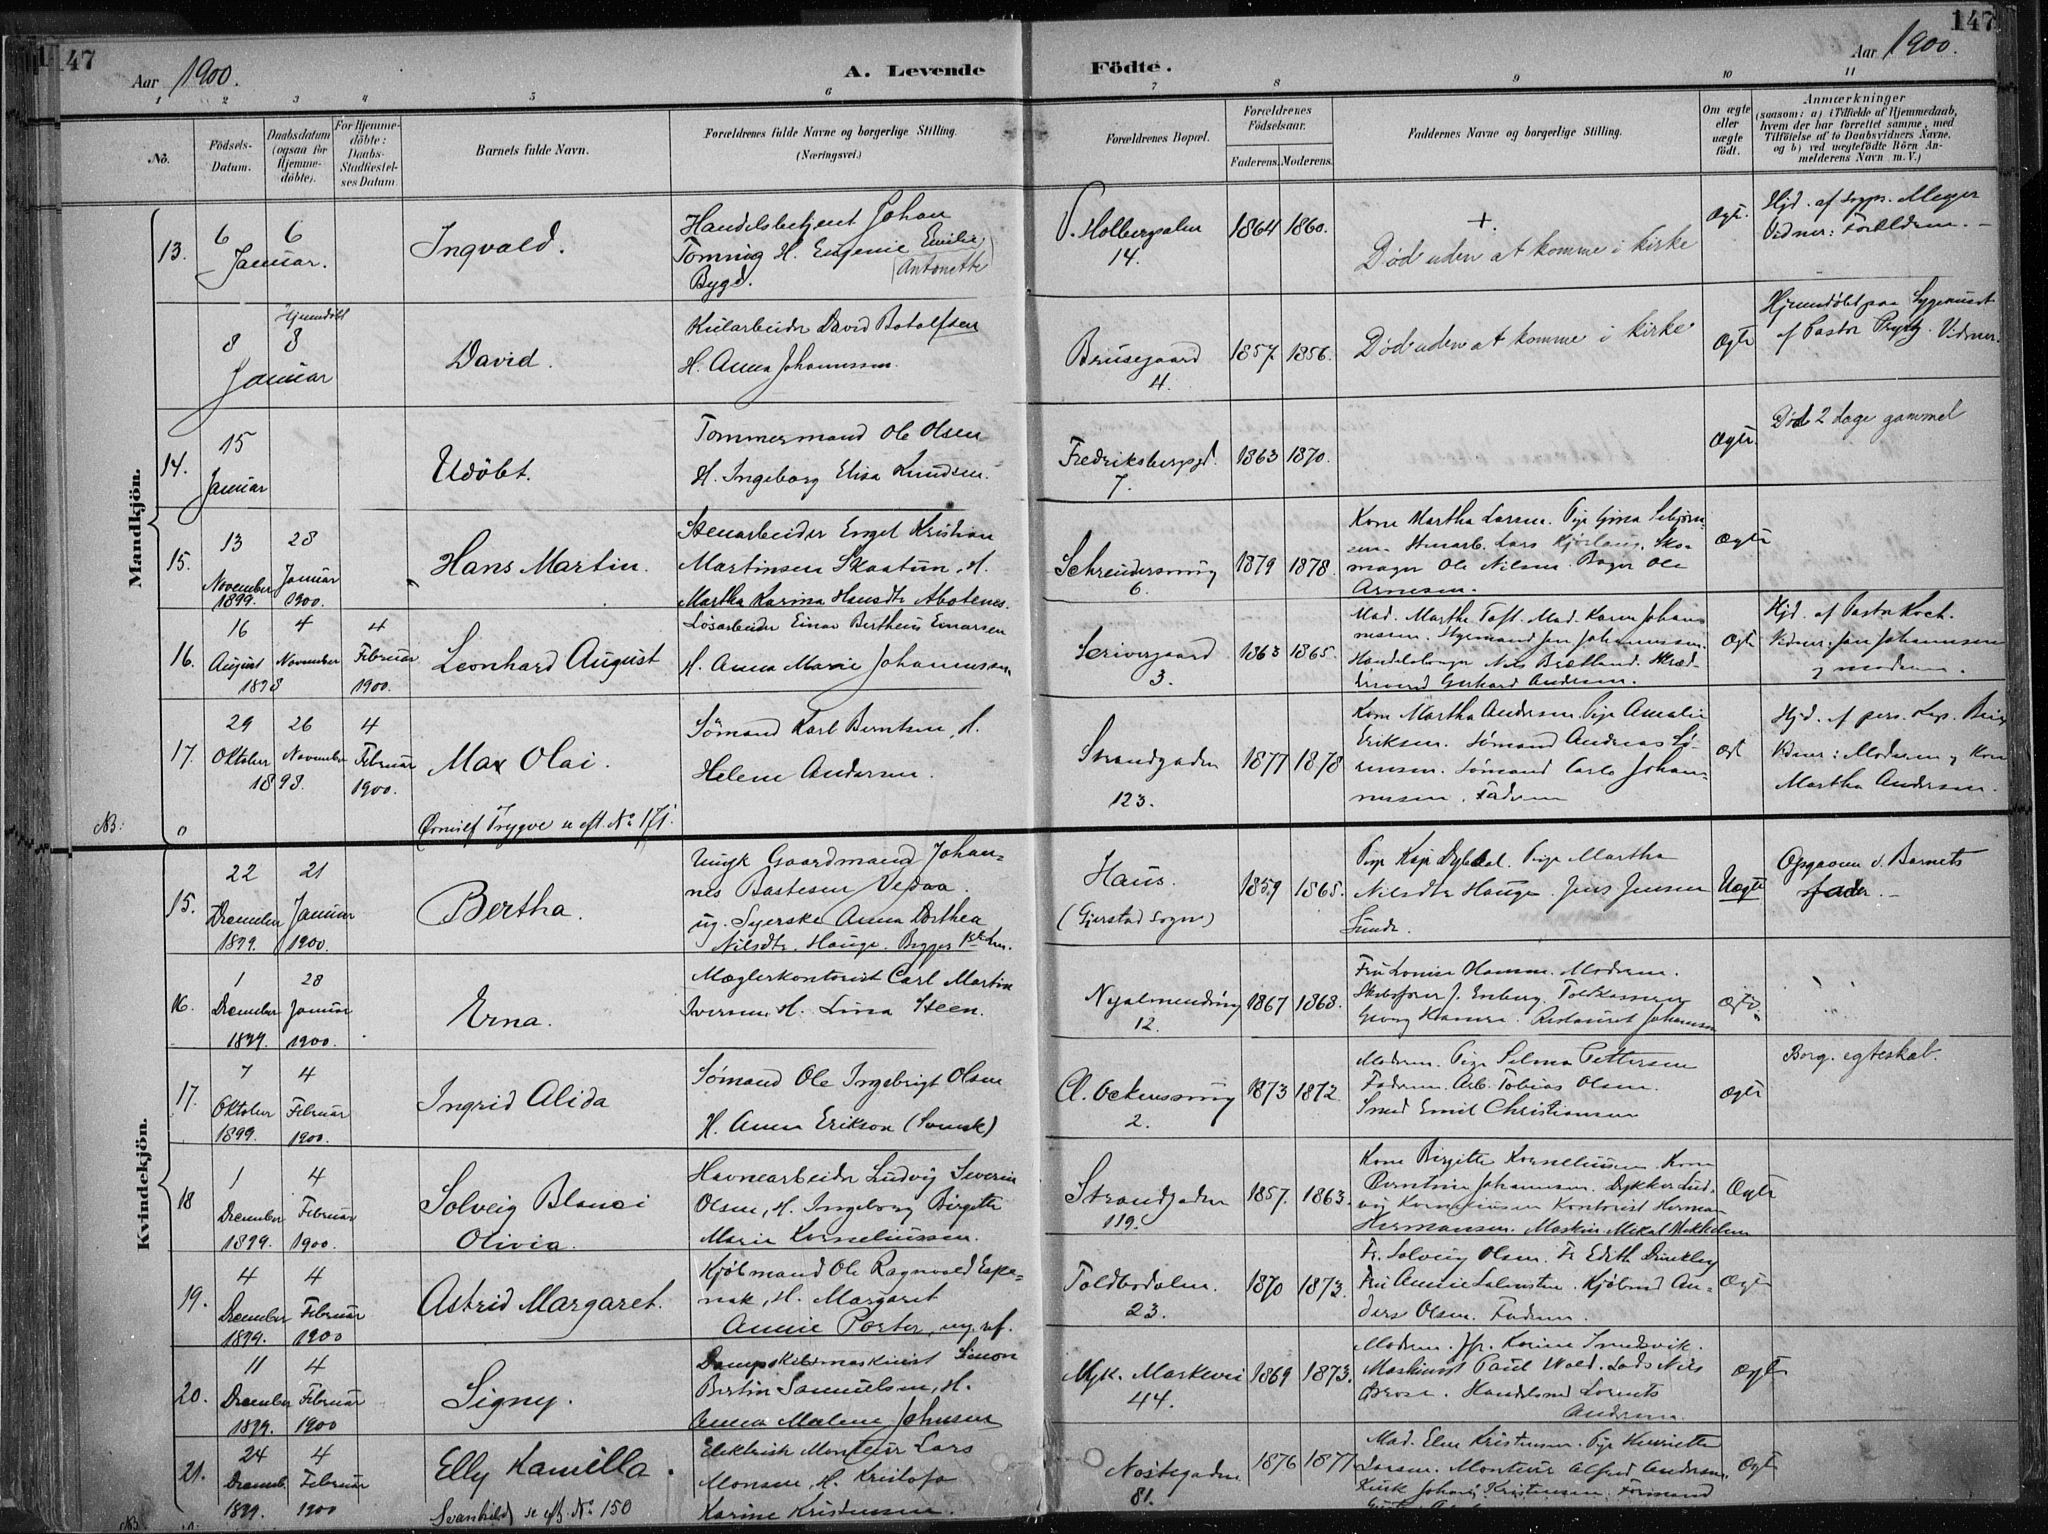 147
147
Aar 1900.
A. Levende
Födte.
Aar 1900.
1 2 3 4 5 6 7 8 9 10 11
No.
Födsels-
Datum.
Daabsdatum
(ogsaa for
Hjemme-
döbte).
For Hjemme-
döbte:
Daabs-
Stadfæstel-
ses Datum
Barnets fulde Navn.
Forældrenes fulde Navne og borgerlige Stilling.
(Næringsvei.)
Forældrenes Bopæl.
Forældrenes
Födselsaar.
Faderens. Moderens.
Faddernes Navne og borgerlige Stilling.
Om ægte
eller
uægte
födt.
Anmærkninger
(saasom: a) i Tilfælde af Hjemmedaab,
hvem der har forrettet samme, med
Tilföielse af to Daabsvidners Navne,
og b) ved uægtefödte Börn An-
melderens Navn m. V.)
Mandkjön.
13.
6
Januar.
6
Ingvald.
Handelsbetjent Johan
Tonning H. Eugenie Emilie
Antonette
Bygd.
V. Holbergsalm
14.
1864 1860.
+
Død uden at komme i kirke
Ægte.
Hjd. af Meyer
Vidner: Forældrene.
8
Januar
Hjemdøbt
8
David.
Kularbeider David Botolfsen
H. Anna Johannessen.
Brusegaard
4.
1857. 1856.
Død uden at komme i kirke
Ægte
Hjemdøbt paa Sygehuset
af Pastor Vidner.
14.
15
Januar
Udöbt.
Tømmermand Ole Olsen
H. Ingeborg Elisa Knudsen.
Fredriksbergsgd.
7.
1863 1870.
Ægte.
Død 2 dage gammel
15.
13
November
1899.
28
Januar
1900.
Hans Martin.
Stenarbeider Engel Kristian
Martinsen Skaatun, H.
Martha Karina Hansdtr Abotenes.
Schreudersmug
6.
1879 1878.
Kone Martha Larsen. Pige Gina
Stenarb. Lars Sko-
mager Ole Nilsen. Bager Ole
Arnesen.
Ægte
16.
16
August
1898
4
November
4
Februar
1900.
Leonhard August
Løsarbeider Einar Bertheus Einarsen
H. Anna Marie Johannessen
Scrivergaard
3.
1863 1865.
Mad. Marthe Toft. Mad. Karen Johan-
nesen. Styrmand Jan Johannessen.
Nils Brætland. Skræd-
dersvend Gerhard Andersen.
Ægte
Hjd. af Pastor Koch.
Vidner: Jan Johannessen
og moderen.
17.
29
Oktober
1898.
26
November
4
Februar
1900.
Max Olai.
Sömand Karl Berntsen, H.
Helene Andersen.
Strandgaden
123.
1877 1878
Kone Martha Andersen. Pige Amalie
Eriksen. Sømand Andreas Sö-
rensen. Sømand Carlo Johan-
nessen. Faderen
Ægt
Hjd. af pers. Kap.
Vidner: Moderen og Kone
Martha Andersen.
NB:
0
Trygve se eft. No 171.
Kvindekjön.
15.
22
December
1899.
21
Januar
1900.
Bertha.
Ungk. Gaardmand Johan-
nes Bastesen Vedaa.
ug. Syerske Anna Dorthea
Nilsdtr. Hauge. Begges 1ste barn.
Haus.
(Gjerstad Sogn)
1859 1865.
Pige Kaja Dybdal. Pige Martha
Nilsdtr Hauge. Jens Jensen
Sunde.
Uægte
Opgaven v. Barnets
fader.
16.
1
December
1899.
28
Januar
1900.
Erna.
Mæglerkontorist Carl Martin
Iversen, H. Lina Steen.
Nyalmending
12.
1867 1868.
Fru Lovise Hansen. Moderen.
Skibsfører J. Enberg. Toldkasserer
Georg Restaurat. Johannsen
Ægte
17.
7
Oktober
1899.
4
Februar
1900.
Ingrid Alida
Sømand Ole Ingebrigt Olsen
H. Anna Erikson (Svensk)
Cl. Ockensmug
2.
1873 1872.
Moderen. Pige Selma Pettersen
Faderen. Arb. Tobias Olsen.
Smed Emil Christiansen
Ægte
Borg. egteskab.
18
1
December
1899.
4
Februar
1900.
Solveig Blanci
Olivia.
Havnearbeider Ludvig Severin
Olsen, H. Ingeborg Birgitte
Marie Korneliussen.
Strandgaden
119.
1857. 1863.
Kone Birgitte Korneliussen. Kone
Berntine Johannesen. Dykker Lud-
vig Korneliussen Kontorist Herman
Hermansen. Maskin. Mikal
Ægte
19.
4
December
1899.
4
Februar
1900
Astrid Margaret.
Kjöbmand Ole Ragnvald Espe-
nak, H. Margaret
Annie Porter,
Toldbodalm.
23.
1870 1873.
Fr. Solveig Olsen. Fr Edith Brinkley
Fru Annie Kjöbmd An-
ders Olsen. Faderen.
Ægte
20.
11
December
1899.
4
Februar
1900
Signy.
Dampskibsmaskinist Simon
Bertin Samuelsen, H.
Anna Malene Johnsen
Nyk. Markevei
44.
1869 1873.
Moderen. Jfr. Karine Smedsvik.
Maskinist Paul Wold. Lods Nils
Handelsmd Lorents
Andersen
Ægte
21.
24
Decemb.
1899.
4
Februar
1900
Elly Kamilla.
Elektrisk Montør Lars
Monsen, H. Kristofa
Karine Kristensen.
Nøstegaden
81.
1876 1877
Mad. Elne Kristensen. Pige Henriette
Larsen. Montør Alfred Andersen,
Kusk Johan Kristensen. Formand
Ægte
NB
Svanhild se eft. No 150